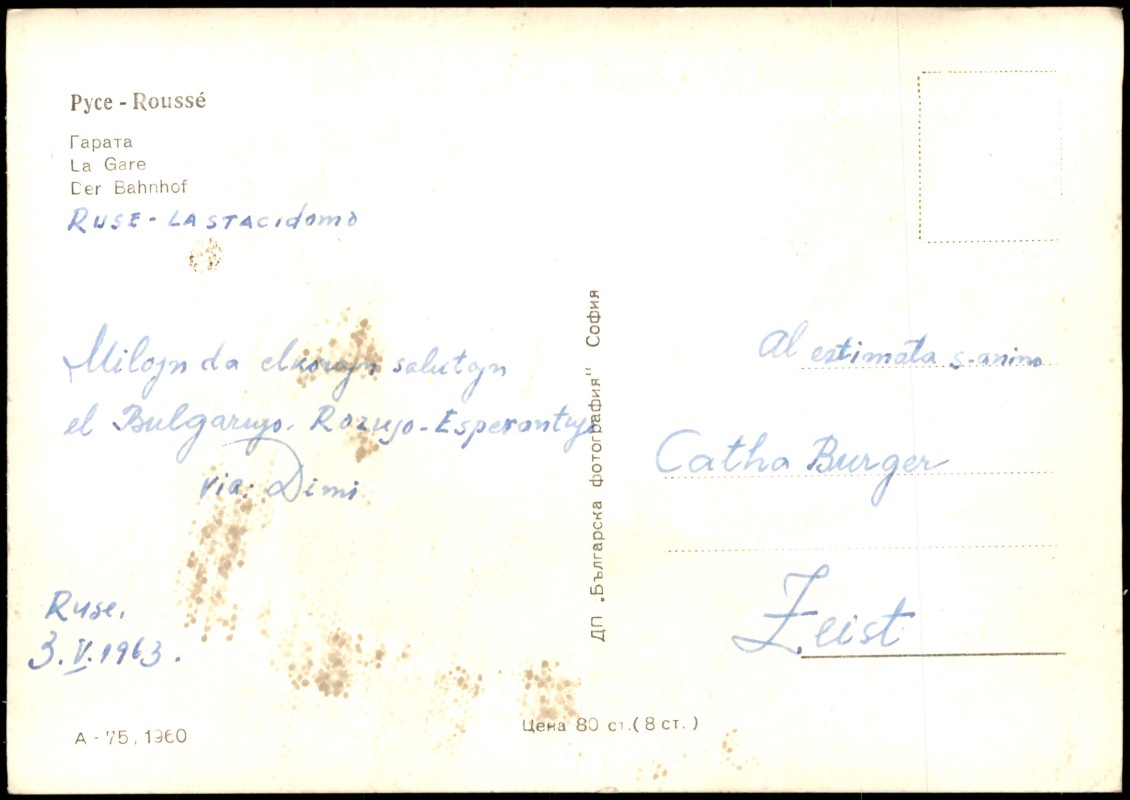 Русе - Roussé
Гарата
La Gare
Der Bahnhof
RUSE - LA STACIdomo
Milojn da elkorajn salutojn
el Bulgarujo. Rozujo-Esperantujo
via: Dimi
Ruse,
3.V.1963.
А - 75, 1960
Цена 80 ст.(8 ст.)
ДП „Българска фотография" София
Al estimata s-anino
Catha Burger
Zeist